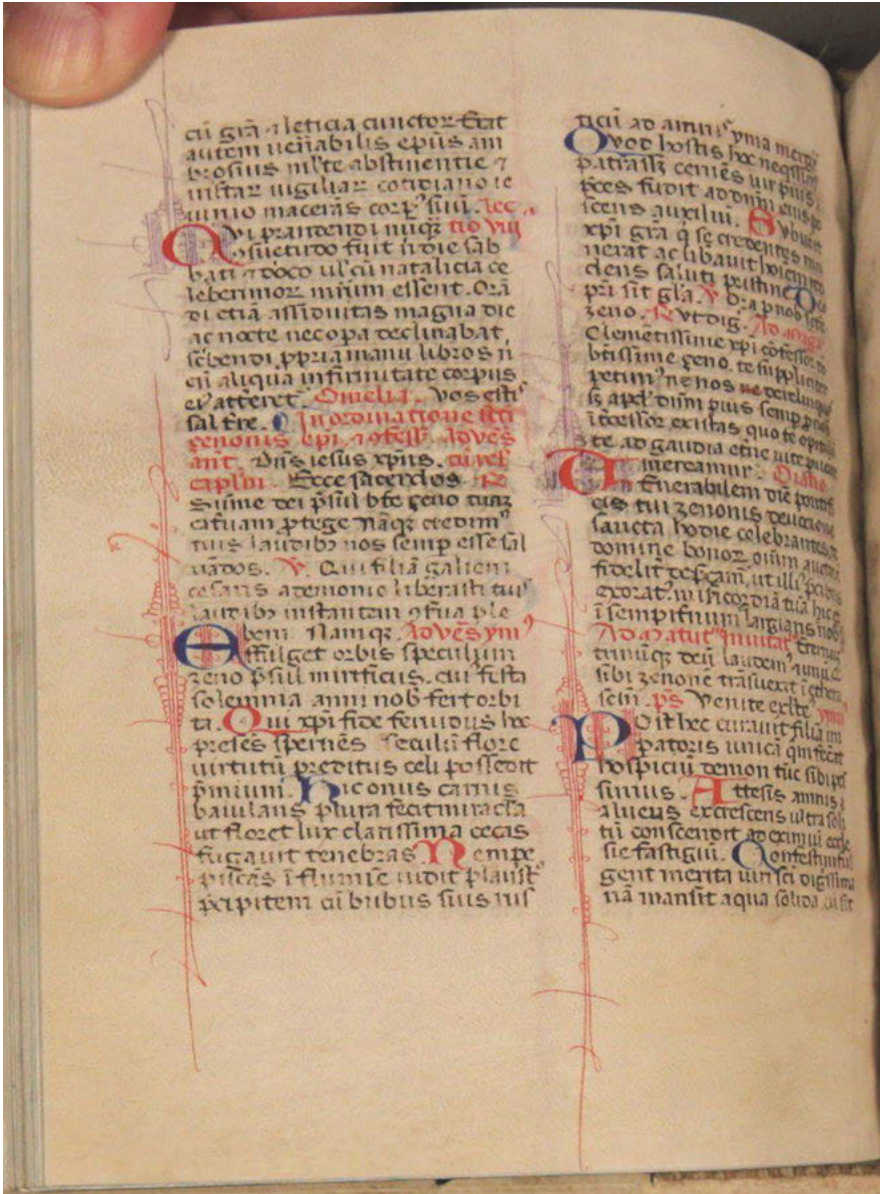 cū grā ⁊ leticia cunctoꝝ Erat
autem uēnabilis epūs am
brosius mlte abstinentie ⁊
uigiliaꝝ cotidiano ie
iunio macerās corpꝰ suū. lec
Qvi prandendi nūqꝫ tio viii
cōsuetudo fuit ū die sab
bati ⁊ dōco ul cū natalicia ce
leberimoꝝ mrūm essent. Orā
di etiā assiduitas magna die
ac nocte nec opa declinabat
sc̄bendi ꝓpria manu libros n̄
cū aliqua infirmitate corpus
eiꝰ atteret. Omelia. Vos estis
sal tr̄e. In ordinatione scti
çenonis epi. ⁊ ɔfess. ad ves
ant. Dn̄s iesus xpūs. cū rel
caplm. Ecce sacerdos R
Sūme dei p̄sul bte çeno tuaꝫ
ꝓtege Nāqꝫ credimꝰ
tuis laudibꝫ nos semp esse sal
uādos. V. Qui filiā galieni
cesaris a demonio liberasti tuis
laudibꝫ instantem ɔfua ple
bem. Namqꝫ. Ad ves ymꝰ
Effulget orbis speculum
zeno p̄sul mirificus. cui festa
solemnia anni nob fert orbi
ta. Qui xpi fide feruidus hec
preses spernēs seculi flore
uirtutū preditus celi possedit
p̄mium. Hic onus carnis
baiulans plura fecit miracla
ut floret lux clarissima cecas
fugauit tenebras. Nempe
piscās ī flumīe uidit plaustꝝ
p̄cipitem cū bubus suis rus
ticū ad amnis yma mergi
Qvod hostis hec neqissimꝰ
patrass; cernēs uir pius
p̄ces fudit ad dnm eius po
scens auxiliū. Subuenit
xpi grā q̄ se credentes
nerat ac libauit hoiem
dens saluti pristine Deo
pri sit glā. V Ora p nob scte
zeno. R Vt dig. Ad magn
Clementissime xpi ɔfessor
btissime çeno. te suppliciter
petimꝰ ne nos derelinquas
sꝫ apd dnm pius semp ꝓ nob
ītcessor existas quo te
te ad gaudia etne uite
mereamur. Oratio
Vēnerabilem diē pontifi
cis tui zenonis
sancta hodie celebrantes
domine bonoꝝ oīum
fidelit ut illiꝰ pcibus
exoratꝰ. misicordiā tuā hic
ī sempitnum largiaris nob
Ad matutꝰ inuitat Eternū
trinūqꝫ deū laudemꝰ
sibi zenonē trāsuexit ī ethera
scm. ps Venite exlte ymn
Post hec curauit filiā im
patoris unicā qm fecit
hospiciū demon tūc sibi
simus. Attesis amnis
alueus excrescens ultra soli
tū conscendit ad eximiū eccle
sie fastigiū. Confestim ful
gent merita uiri sci digissima
nā mansit aqua solida cū sit